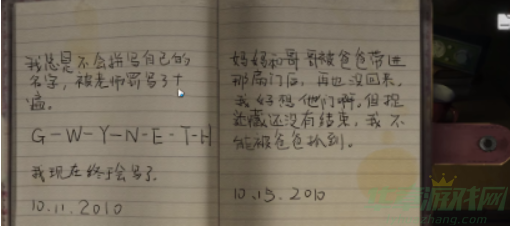 我总是不会拼写自己的
名字，被老师罚写了十
遍。
G-W-Y-N-E-T-H
我现在终于会写了。
10.11.2010
妈妈和哥哥被爸爸带进
那扇门后，再也没回来。
我好想他们啊。但捉
迷藏还没有结束，我不
能被爸爸抓到。
10.15.2010
游戏网